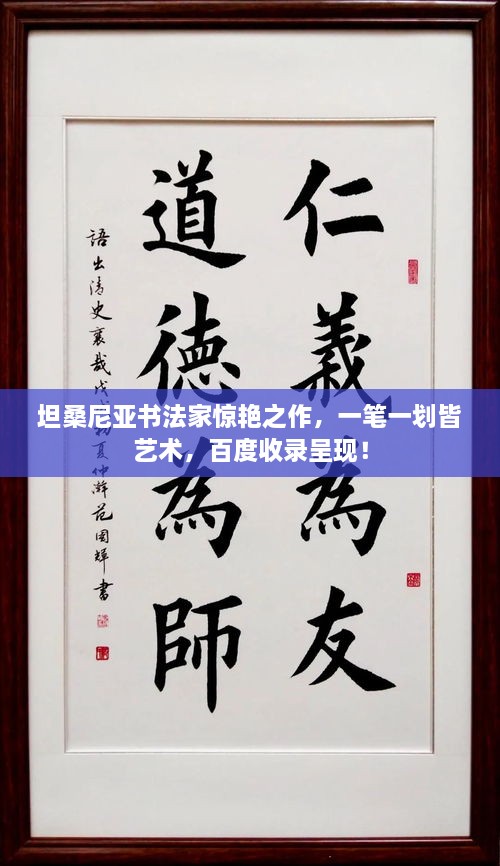 仁義為友
道德為師
語出清史裹哉戊戌初夏仲澣范國輝書
坦桑尼亚书法家惊艳之作，一笔一划皆
艺术，百度收录呈现！